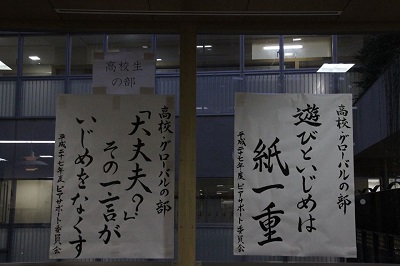 高校生
の部
高校・グローバルの部
「大丈夫?」
その一言が
いじめをなくす
平成二十七年度、ピアサポート委員会
高校・グローバルの部
遊びといじめは
紙一重
平成二十七年度、ピアサポート委員会